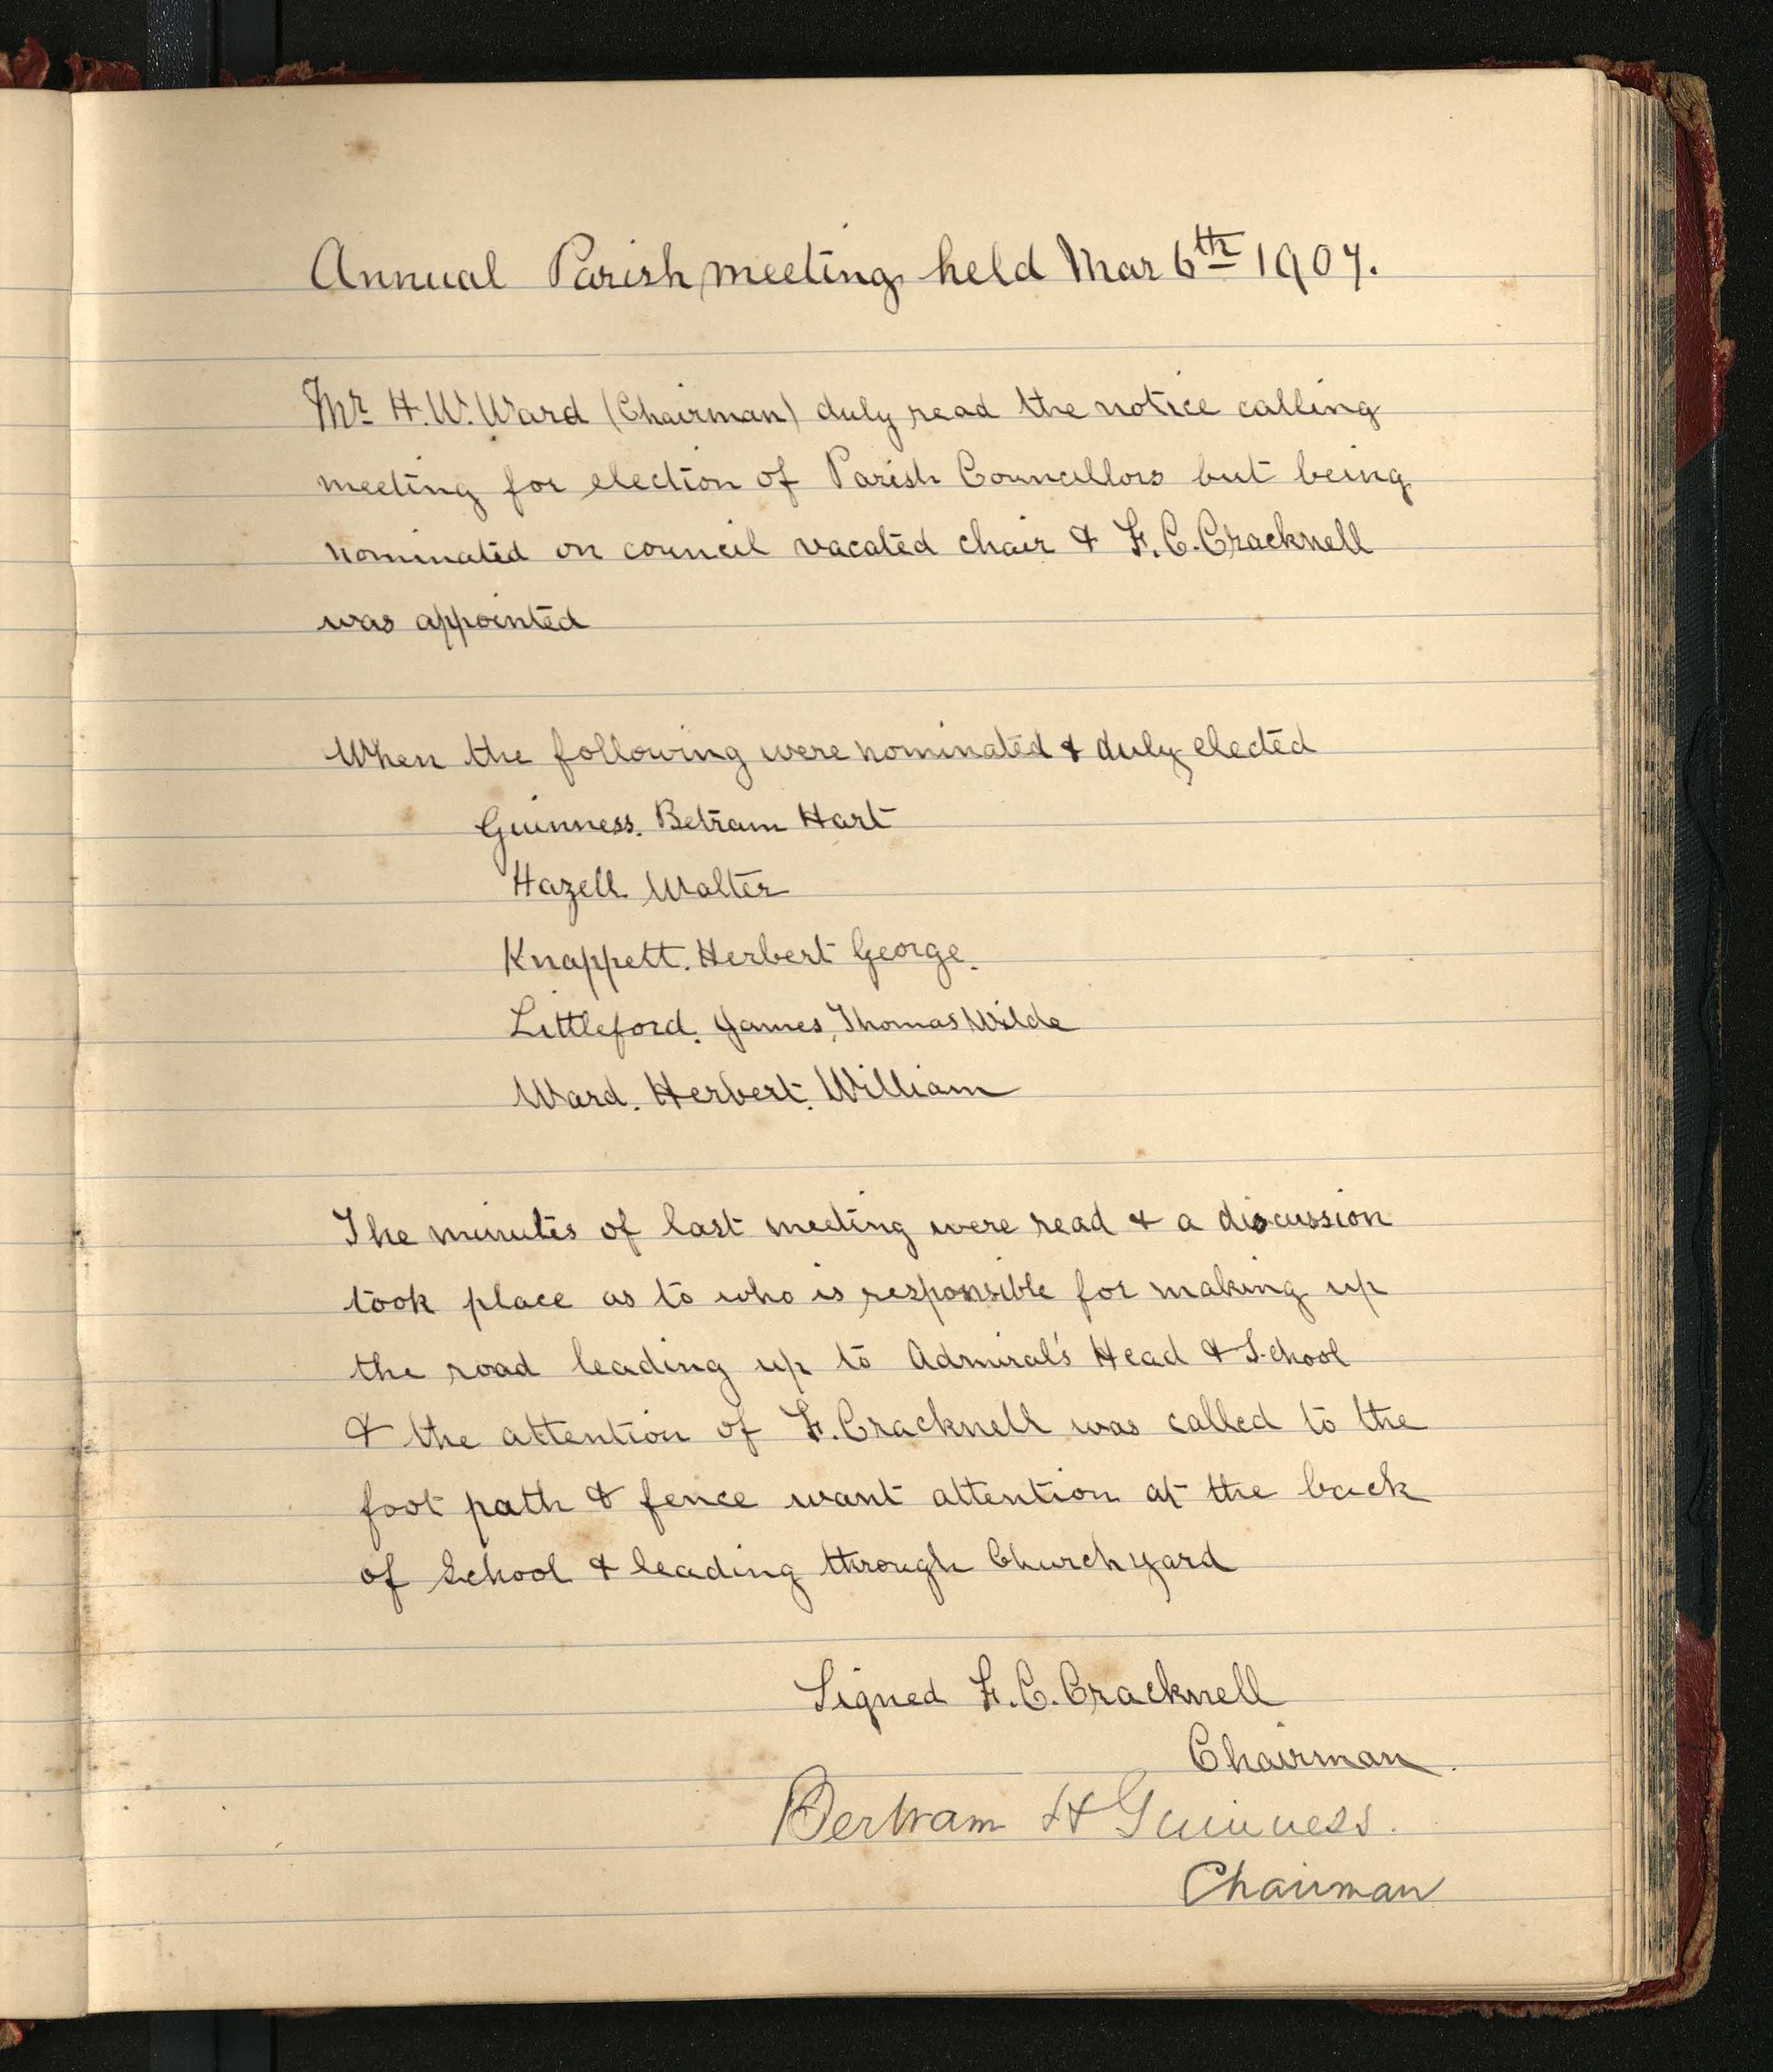 Annual Parish meeting held Mar 6th 1907.
Mr H. W. Ward (Chairman) duly read the notice calling
meeting for election of Parish Councillors but being
nominated on council vacated chair & F. C. Cracknell
was appointed
When the following were nominated & duly elected
Guinness. Betram Hart
Hazell Walter
Knappett. Herbert George.
Littleford. James, Thomas Wilde
Ward. Herbert. William
The minutes of last meeting were read & a discussion
took place as to who is responsible for making up
the road leading up to Admiral's Head & School
& the attention of F. Cracknell was called to the
foot path & fence want attention at the back
of School & leading through Church yard
Signed F. C. Cracknell
Chairman.
Bertram H Guinness.
Chairman